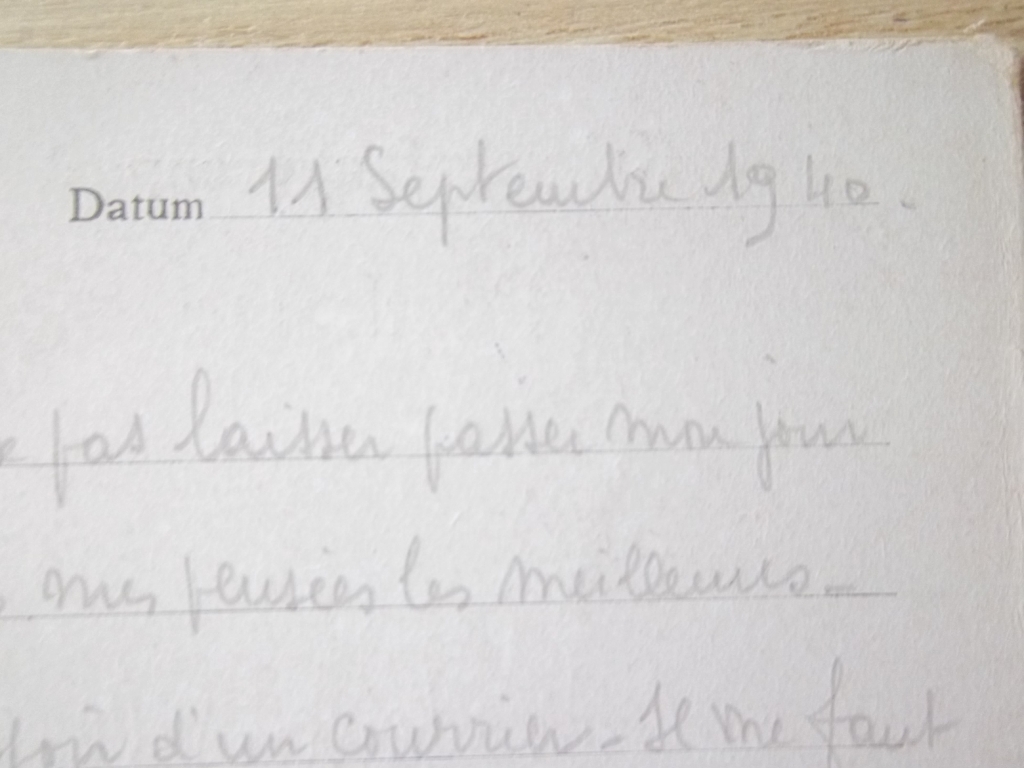 Datum 11 Septembre 1940.
pas laisser passer mon jour
mes pensées les meilleures.
d'un courrier. Il me faut